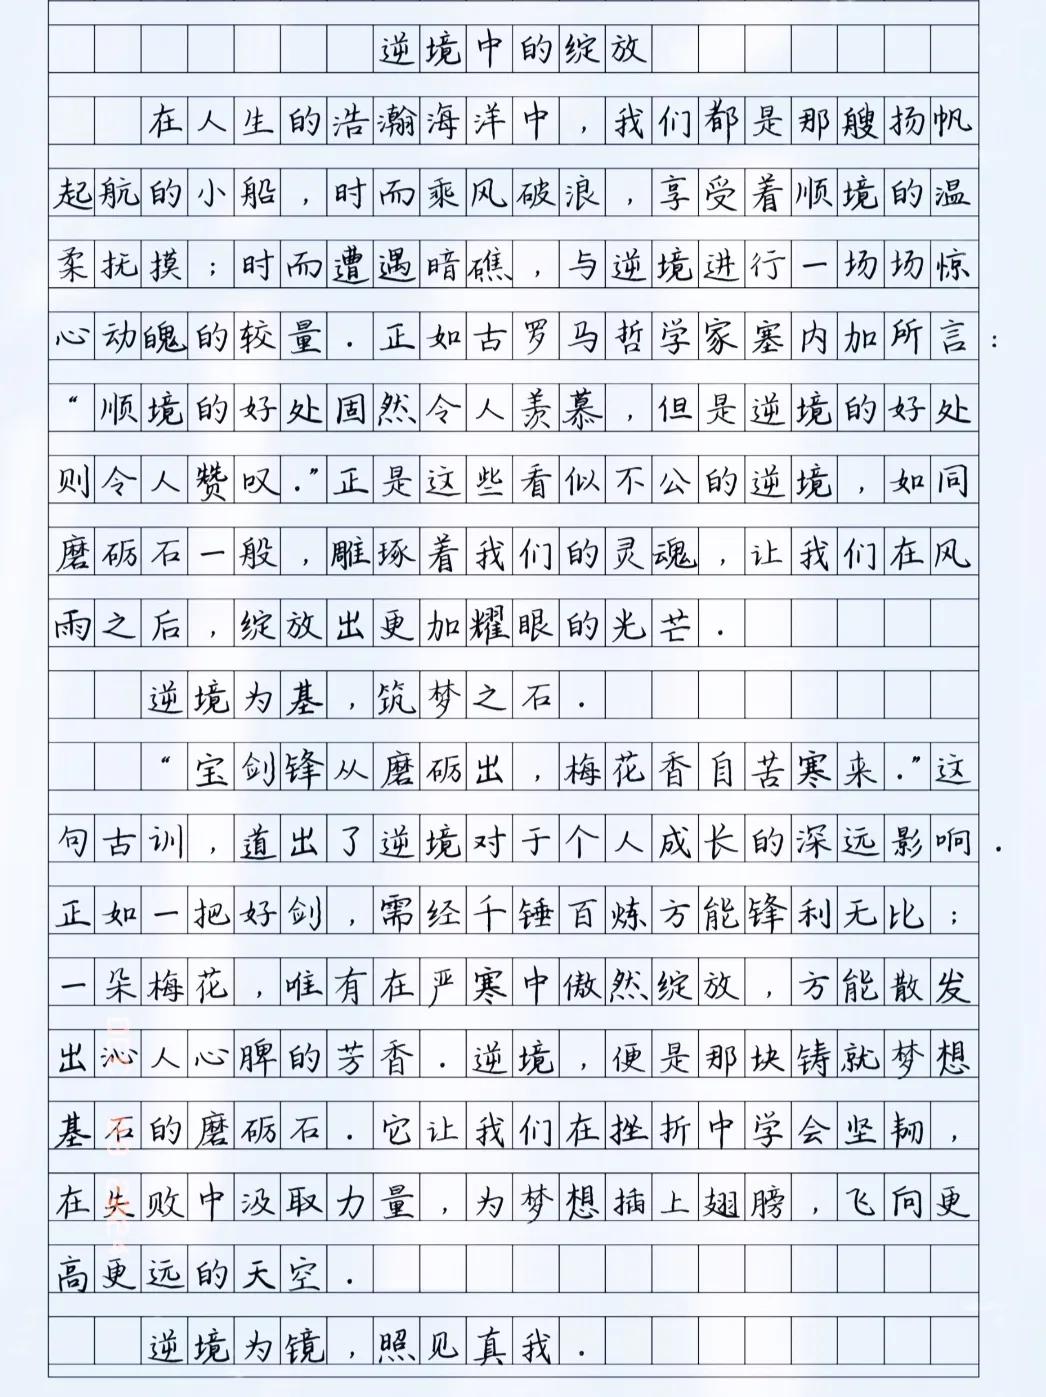 逆境中的绽放
在人生的浩瀚海洋中，我们都是那艘扬帆
起航的小船，时而乘风破浪，享受着顺境的温
柔抚摸；时而遭遇暗礁，与逆境进行一场场惊
心动魄的较量．正如古罗马哲学家塞内加所言：
“顺境的好处固然令人羡慕，但是逆境的好处
则令人赞叹．”正是这些看似不公的逆境，如同
磨砺石一般，雕琢着我们的灵魂，让我们在风
雨之后，绽放出更加耀眼的光芒．
逆境为基，筑梦之石．
“宝剑锋从磨砺出，梅花香自苦寒来．”这
句古训，道出了逆境对于个人成长的深远影响．
正如一把好剑，需经千锤百炼方能锋利无比；
一朵梅花，唯有在严寒中傲然绽放，方能散发
出沁人心脾的芳香．逆境，便是那块铸就梦想
基石的磨砺石．它让我们在挫折中学会坚韧，
在失败中汲取力量，为梦想插上翅膀，飞向更
高更远的天空．
逆境为镜，照见真我．